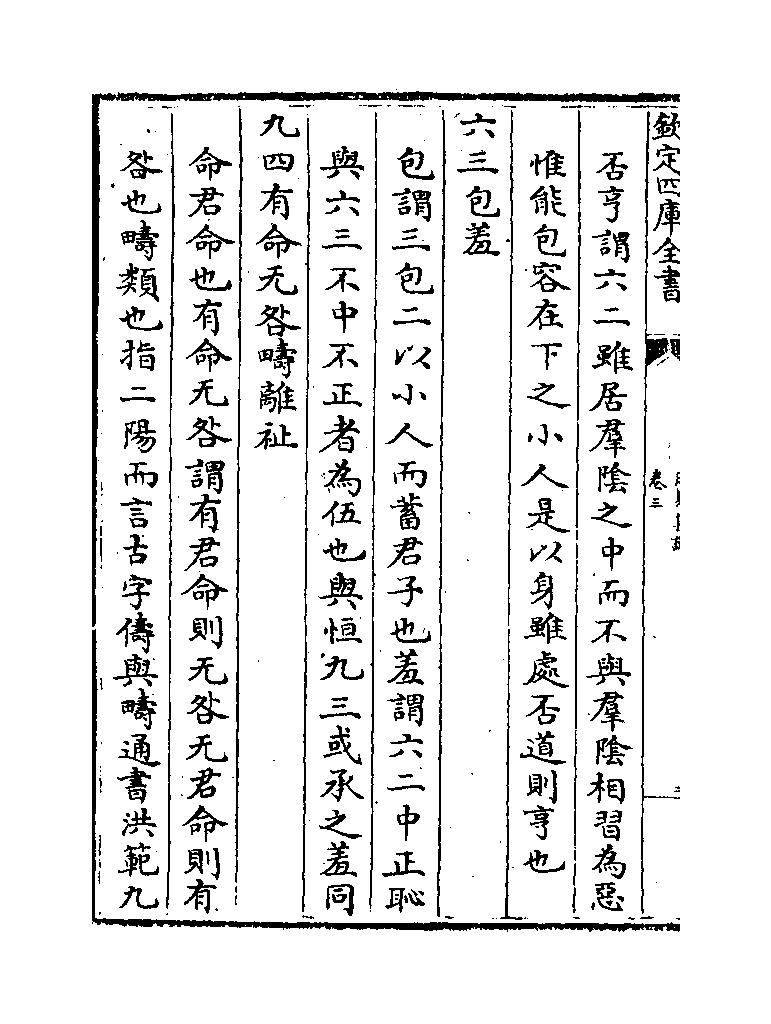 欽定四庫全書
卷三
否亨謂六二雖居羣陰之中而不與羣陰相習為惡
惟能包容在下之小人是以身雖處否道則亨也
六三包羞
包謂三包二以小人而蓄君子也羞謂六二中正恥
與六三不中不正者為伍也與恒九三或承之羞同
九四有命无咎疇離祉
命君命也有命无咎謂有君命則无咎无君命則有
咎也疇類也指二陽而言古字儔與疇通書洪範九